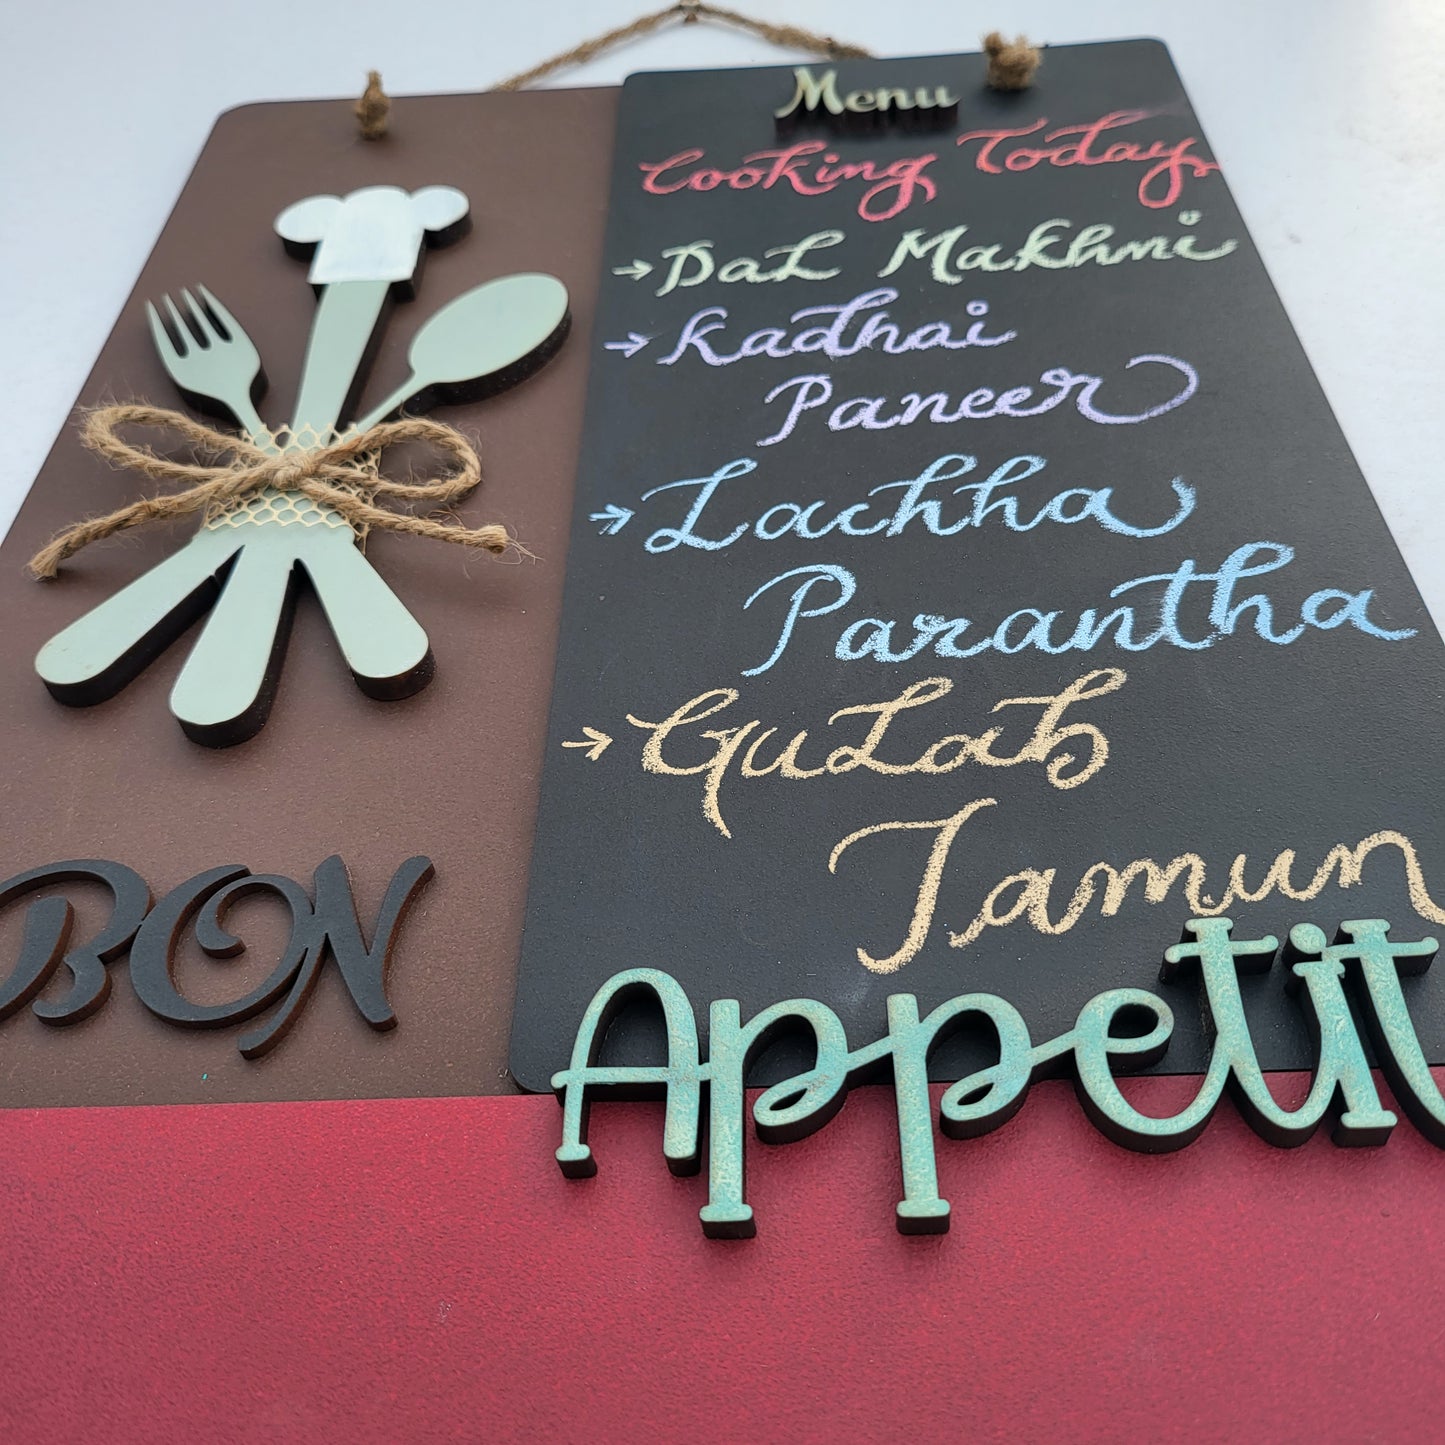 Menu
Cooking Today
→ Dal Makhni
→ Kadhai
Paneer
→ Lachha
Parantha
→ Gulab
Jamun
BON
Appetit